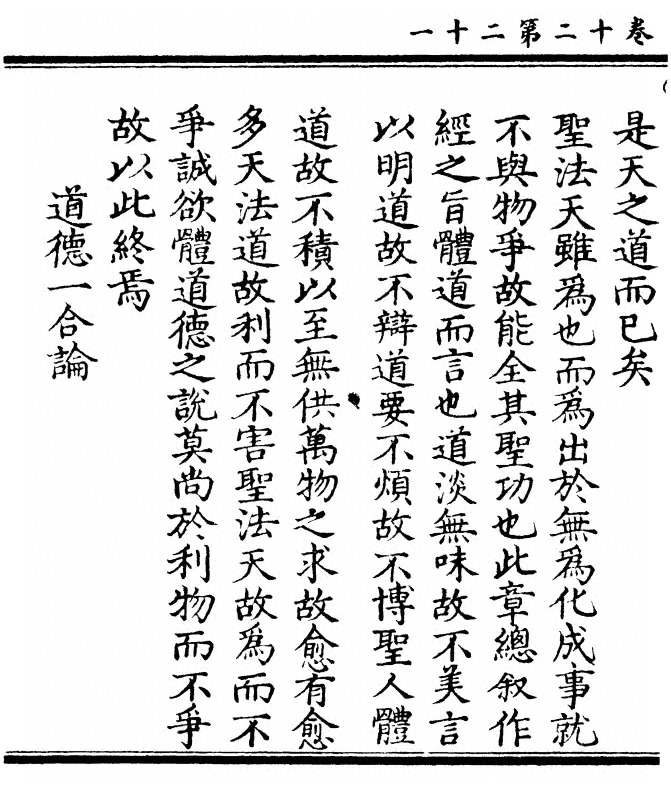 卷十二第二十一
是天之道而已矣
聖法天雖爲也而爲出於無爲化成事就
不與物爭故能全其聖功也此章總叙作
經之旨體道而言也道淡無味故不美言
以明道故不辯道要不煩故不博聖人體
道故不積以至無供萬物之求故愈有愈
多天法道故利而不害聖法天故爲而不
爭誠欲體道德之說莫尚於利物而不爭
故以此終焉
道德一合論